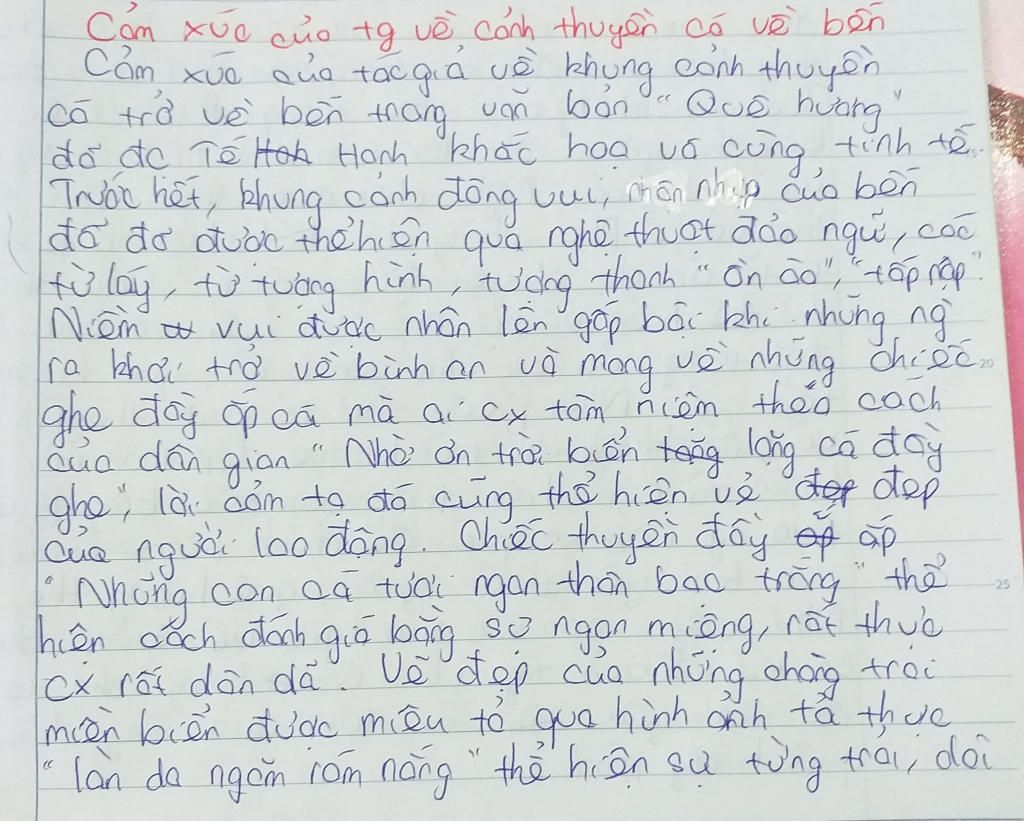 Cảm xúc của tg về cảnh thuyền cá về bến
Cảm xúc của tác giả về khung cảnh thuyền
cá trở về bến trong văn bản "Quê hương"
đã đc Tế Hanh khắc hoạ vô cùng tinh tế.
Trước hết, khung cảnh đông vui, nhộn nhịp của bến
đỗ đã được thể hiện qua nghệ thuật đảo ngữ, các
từ láy, từ tượng hình, tượng thanh "ồn ào", "tấp nập".
Niềm vui được nhân lên gấp bội khi những ng
ra khơi trở về bình an và mang về những chiếc
ghe đầy ắp cá mà ai cx tâm niệm theo cách
của dân gian "Nhờ ơn trời biển lặng cá đầy
ghe", lời cảm tạ đó cũng thể hiện vẻ đẹp
của người lao động. Chiếc thuyền đầy ắp
"Những con cá tươi ngon thân bạc trắng" thể
hiện cách đánh giá bằng sự ngon miệng, rất thực
cx rất dân dã. Vẻ đẹp của những chàng trai
miền biển được miêu tả qua hình ảnh tả thực
"làn da ngăm rám nắng" thể hiện sự từng trải, dãi
20
25